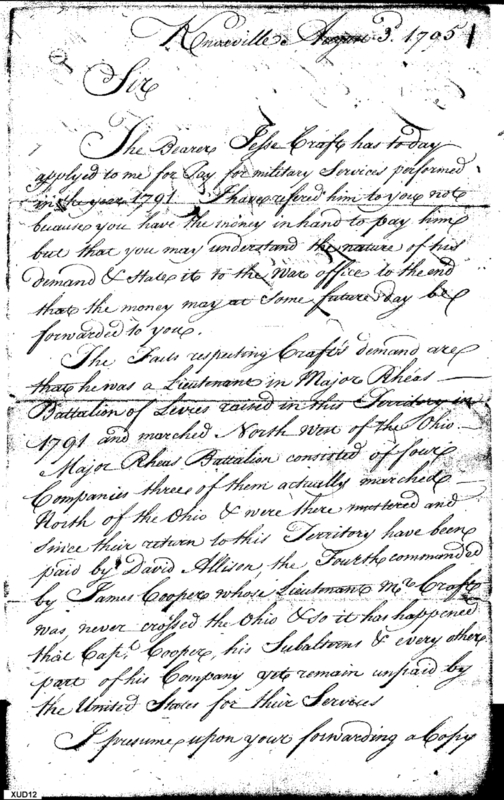 Knoxville August 3d. 1795
Sir
The Bearer Jesse Craft has today
applyed to me for Pay for military Services performed
in the year 1791 I have refered him to you not
because you have the money in hand to pay him
but that you may understand the nature of his
demand & State it to the War office to the end
that the money may at some future day be
forwarded to you.
The Facts respecting Craft's demand are
that he was a Lieutenant in Major Rheas
Battalion of Levies raised in this Territory in
1791 and marched North West of the Ohio
Major Rheas Battalion consisted of four
Companies three of them actually marched
North of the Ohio & were there mustered and
since their return to this Territory have been
paid by David Allison, the Fourth commanded
by James Cooper whose Lieutenant Mr. Craft
was, never crossed the Ohio & so it has happened
that Capt. Cooper, his Subalterns & every other
part of his Company yet remain unpaid by
the United States for their Services
I presume upon your forwarding a Copy
XUD12